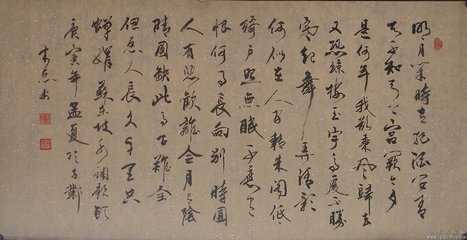 明月几時有把酒问青
天不知天上宫阙今夕
是何年我欲乘风歸去
又恐瓊樓玉宇高處不勝
寒起舞弄清影
何似在人间转朱阁低
绮户照無眠不應有
恨何事長向别時圆
人有悲歡離合月有陰
晴圆缺此事古難全
但愿人長久千里共
嬋娟蘇東坡水调歌頭
庚寅年孟夏於古
书